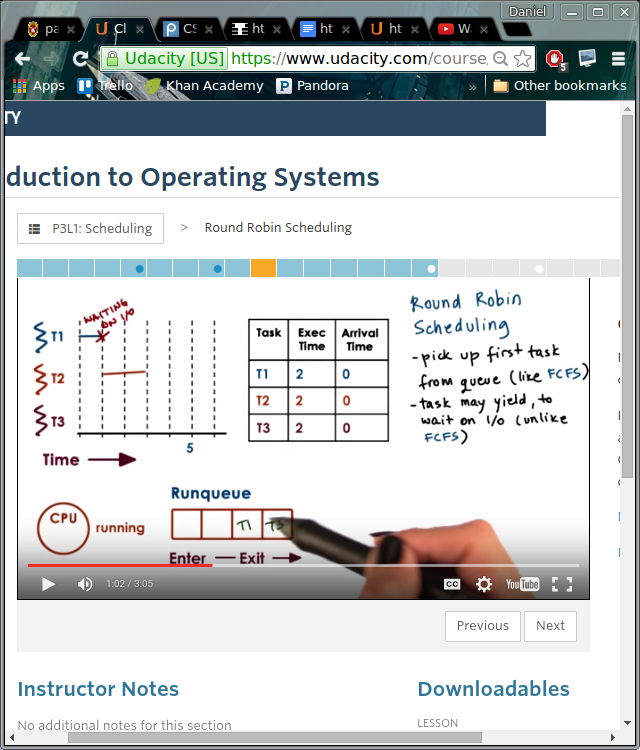 Daniel
pa
Cl
CS
ht
ht
ht
Wa
Udacity [US] https://www.udacity.com/course
5
Apps Trello Khan Academy Pandora » Other bookmarks
TY
duction to Operating Systems
P3L1: Scheduling > Round Robin Scheduling
WAITING
ON I/O
T1
T2
T3
5
Time
Task Exec Time Arrival Time
T1 2 0
T2 2 0
T3 2 0
Round Robin
Scheduling
- pick up first task
from queue (like FCFS)
- task may yield, to
wait on I/O (unlike
FCFS)
Runqueue
CPU running
T1 T3
Enter Exit
1:02 / 3:05
CC
YouTube
Previous Next
Instructor Notes Downloadables
No additional notes for this section LESSON